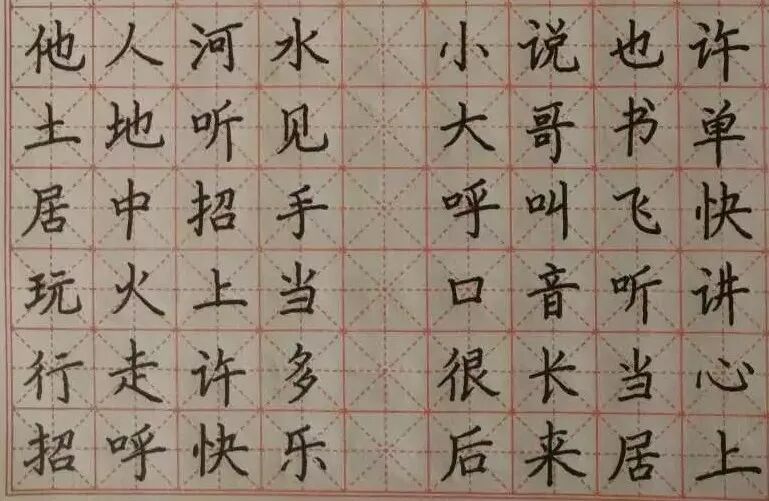 他人河水 小说也许
土地听见 大哥书单
居中招手 呼叫飞快
玩火上当 口音听讲
行走许多 很长当心
招呼快乐 后来居上